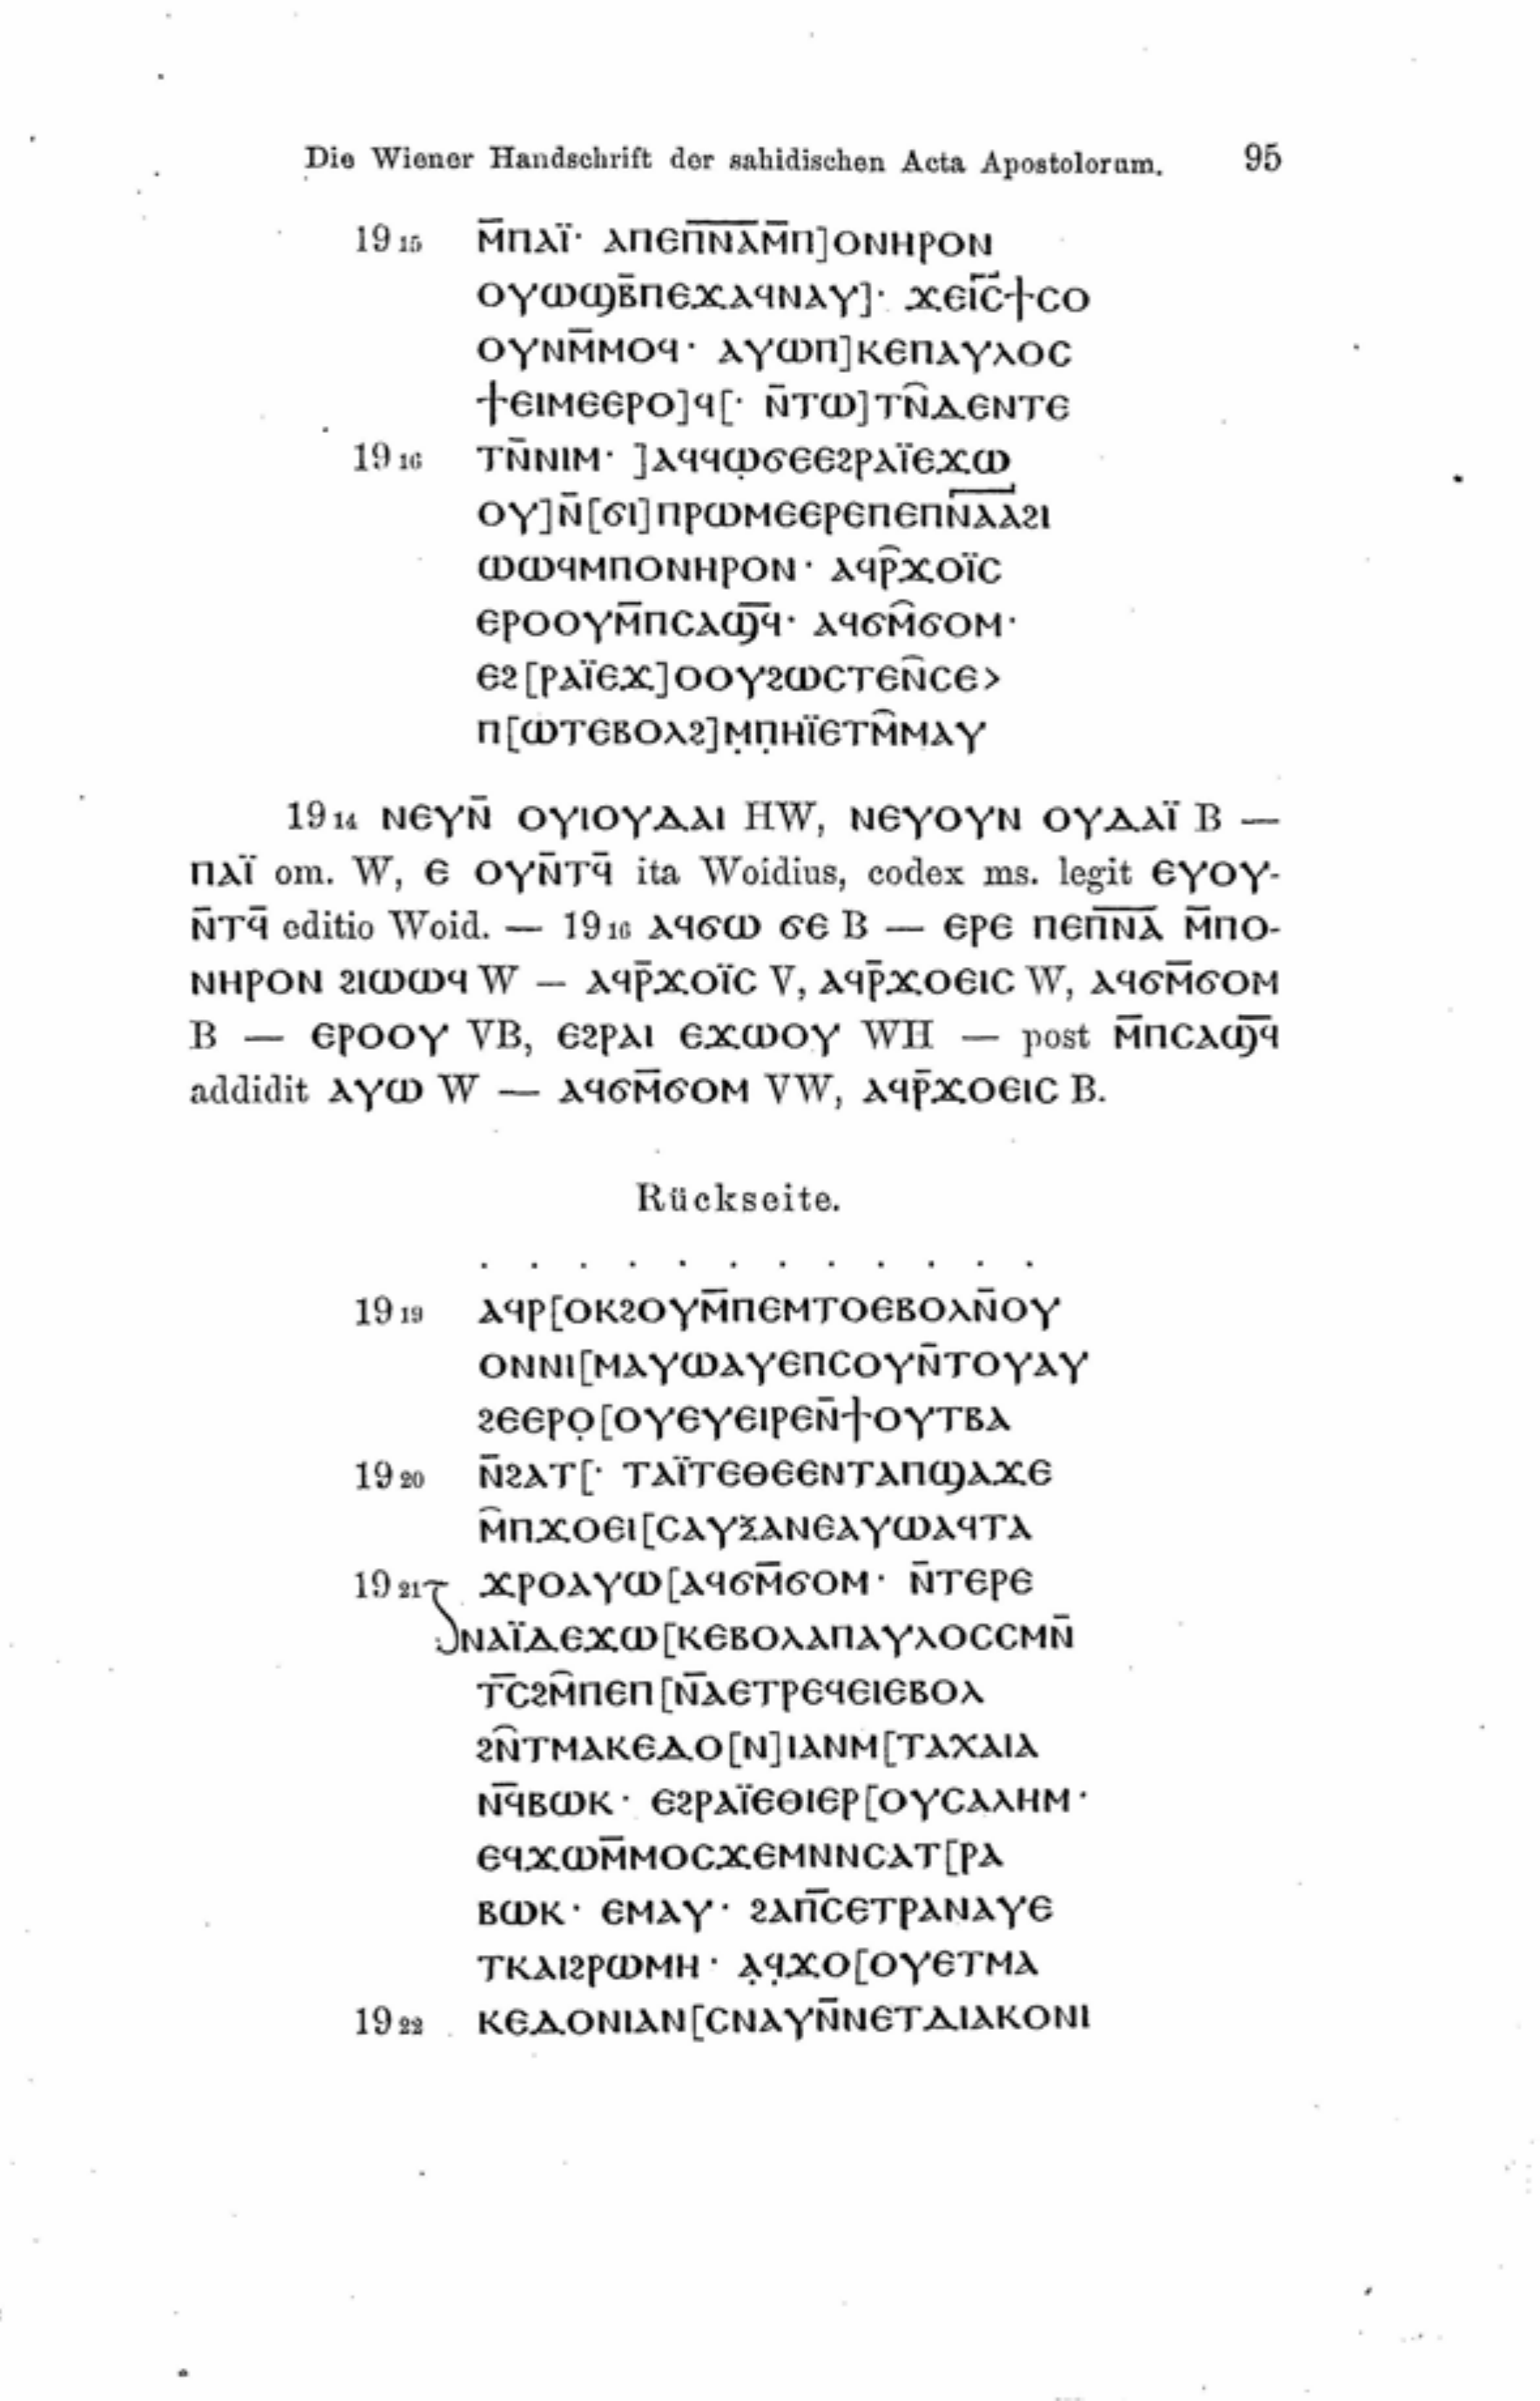 Die Wiener Handschrift der sahidischen Acta Apostolorum. 95
19 15 ⲙ̄ⲡⲁⲓ̈· ⲁⲡⲉⲡ̅ⲛ̅ⲁ̅ⲙ̄ⲡ]ⲟⲛⲏⲣⲟⲛ
ⲟⲩⲱϣⲃ̄ⲡⲉϫⲁϥⲛⲁⲩ]· ϫⲉⲓ̅ⲥ̅ϯⲥⲟ
ⲟⲩⲛⲙ̄ⲙⲟϥ· ⲁⲩⲱⲡ]ⲕⲉⲡⲁⲩⲗⲟⲥ
ϯⲉⲓⲙⲉⲉⲣⲟ]ϥ[· ⲛ̄ⲧⲱ]ⲧⲛ̑ⲇⲉⲛⲧⲉ
19 16 ⲧⲛ̄ⲛⲓⲙ· ]ⲁϥϥⲱ̣ϭⲉⲉϩⲣⲁⲓ̈ⲉϫⲱ
ⲟⲩ]ⲛ̄[ϭⲓ]ⲡⲣⲱⲙⲉⲉⲣⲉⲡⲉⲡⲛ̅ⲁ̅ⲁϩⲓ
ⲱⲱϥⲙⲡⲟⲛⲏⲣⲟⲛ· ⲁϥⲣ̑ϫⲟⲓ̈ⲥ
ⲉⲣⲟⲟⲩⲙ̄ⲡⲥⲁϣ̅ϥ̅· ⲁϥϭⲙ̑ϭⲟⲙ·
ⲉϩ[ⲣⲁⲓ̈ⲉϫ]ⲟⲟⲩϩⲱⲥⲧⲉⲛ̑ⲥⲉ>
ⲡ[ⲱⲧⲉⲃⲟⲗϩ]ⲙ̣ⲡ̣ⲏⲓ̈ⲉⲧⲙ̑ⲙⲁⲩ
19 14 ⲛⲉⲩⲛ̄ ⲟⲩⲓⲟⲩⲇⲁⲓ HW, ⲛⲉⲩⲟⲩⲛ ⲟⲩⲇⲁⲓ̈ B —
ⲡⲁⲓ̈ om. W, ⲉ ⲟⲩⲛ̄ⲧϥ̄ ita Woidius, codex ms. legit ⲉⲩⲟⲩ-
ⲛ̄ⲧϥ̄ editio Woid. — 19 16 ⲁϥϭⲱ ϭⲉ B — ⲉⲣⲉ ⲡⲉⲡ̅ⲛ̅ⲁ̅ ⲙ̄ⲡⲟ-
ⲛⲏⲣⲟⲛ ϩⲓⲱⲱϥ W — ⲁϥⲣ̄ϫⲟⲓ̈ⲥ V, ⲁϥⲣ̄ϫⲟⲉⲓⲥ W, ⲁϥϭⲙ̄ϭⲟⲙ
B — ⲉⲣⲟⲟⲩ VB, ⲉϩⲣⲁⲓ ⲉϫⲱⲟⲩ WH — post ⲙ̄ⲡⲥⲁϣ̅ϥ̅
addidit ⲁⲩⲱ W — ⲁϥϭⲙ̄ϭⲟⲙ VW, ⲁϥⲣ̄ϫⲟⲉⲓⲥ B.
Rückseite.
. . . . . . . . . . . .
19 19 ⲁϥⲣ[ⲟⲕϩⲟⲩⲙ̄ⲡⲉⲙⲧⲟⲉⲃⲟⲗⲛ̄ⲟⲩ
ⲟⲛⲛⲓ[ⲙⲁⲩⲱⲁⲩⲉⲡⲥⲟⲩⲛ̄ⲧⲟⲩⲁⲩ
ϩⲉⲉⲣⲟ̣[ⲟⲩⲉⲩⲉⲓⲣⲉⲛ̄ϯⲟⲩⲧⲃⲁ
19 20 ⲛ̄ϩⲁⲧ[· ⲧⲁⲓ̈ⲧⲉⲑⲉⲉⲛⲧⲁⲡϣⲁϫⲉ
ⲙ̑ⲡϫⲟⲉⲓ[ⲥⲁⲩⲝⲁⲛⲉⲁⲩⲱⲁϥⲧⲁ
19 21 ϫⲣⲟⲁⲩⲱ[ⲁϥϭⲙ̄ϭⲟⲙ· ⲛ̄ⲧⲉⲣⲉ
ⲛⲁⲓ̈ⲇⲉϫⲱ[ⲕⲉⲃⲟⲗⲁⲡⲁⲩⲗⲟⲥⲥⲙⲛ̄
ⲧ̅ⲥϩⲙ̑ⲡⲉⲡ[ⲛ̅ⲁ̅ⲉⲧⲣⲉϥⲉⲓⲉⲃⲟⲗ
ϩⲛ̑ⲧⲙⲁⲕⲉⲇⲟ[ⲛ]ⲓⲁⲛⲙ[ⲧⲁⲭⲁⲓⲁ
ⲛ̅ϥⲃⲱⲕ· ⲉϩⲣⲁⲓ̈ⲉⲑⲓⲉⲣ[ⲟⲩⲥⲁⲗⲏⲙ·
ⲉϥϫⲱⲙ̄ⲙⲟⲥϫⲉⲙⲛⲛⲥⲁⲧ[ⲣⲁ
ⲃⲱⲕ· ⲉⲙⲁⲩ· ϩⲁⲡ̅ⲥⲉⲧⲣⲁⲛⲁⲩⲉ
ⲧⲕⲁⲓϩⲣⲱⲙⲏ· ⲁ̣ϥ̣ϫⲟ[ⲟⲩⲉⲧⲙⲁ
19 22 ⲕⲉⲇⲟⲛⲓⲁⲛ[ⲥⲛⲁⲩⲛ̄ⲛⲉⲧⲇⲓⲁⲕⲟⲛⲓ